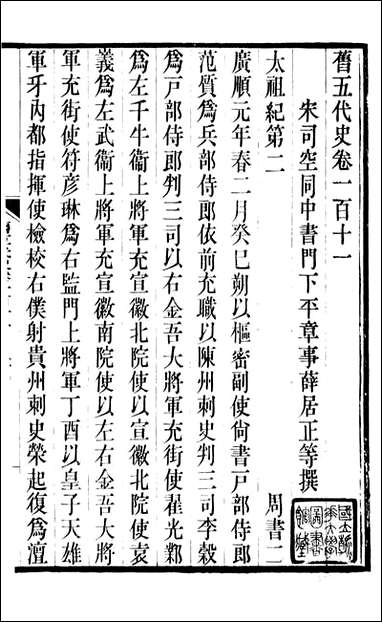 舊五代史卷一百十一
宋司空同中書門下平章事薛居正等撰
太祖紀第二 周書二
廣順元年春二月癸巳朔以樞密副使尙書戸部侍郎
范質爲兵部侍郎依前充職以陳州刺史判三司李穀
爲戸部侍郎判三司以右金吾大將軍充街使翟光鄴
爲左千牛衞上將軍充宣徽北院使以宣徽北院使袁
義爲左武衞上將軍充宣徽南院使以左右金吾大將
軍充街使符彥琳爲右監門上將軍丁酉以皇子天雄
軍牙內都指揮使檢校右僕射貴州刺史榮起復爲澶